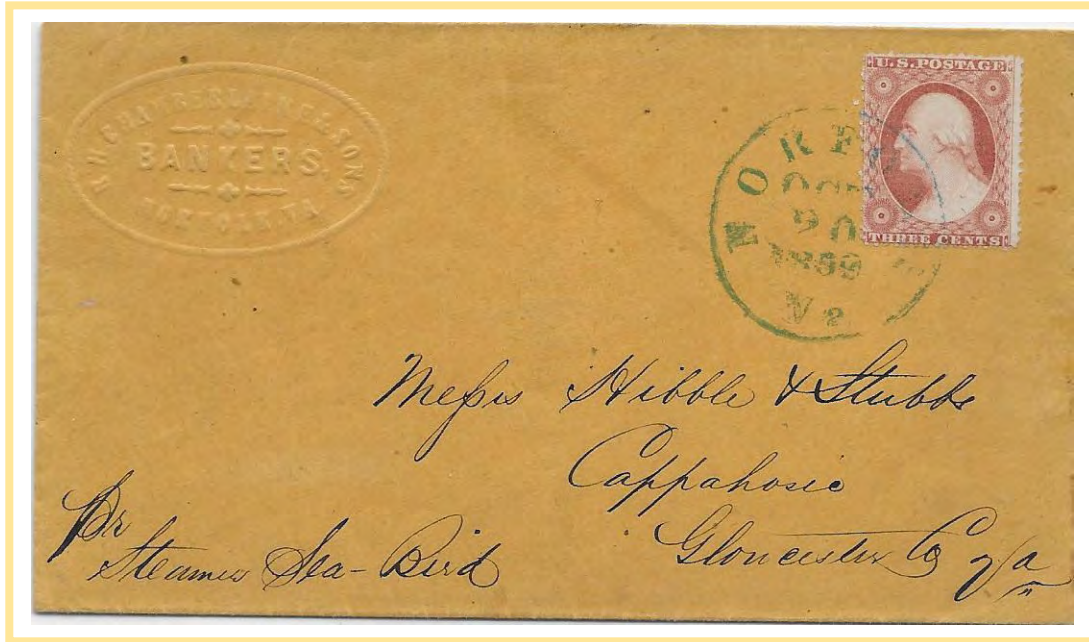 R.H. CHAMBERLAINE & SONS
BANKERS,
NORFOLK, VA
U.S. POSTAGE
THREE CENTS
NORFOLK
OCT
20
1859
Va
Messrs Hibble & Stubbs
Cappahosic
Gloucester Co Va
Pr
Steamer Sea-Bird